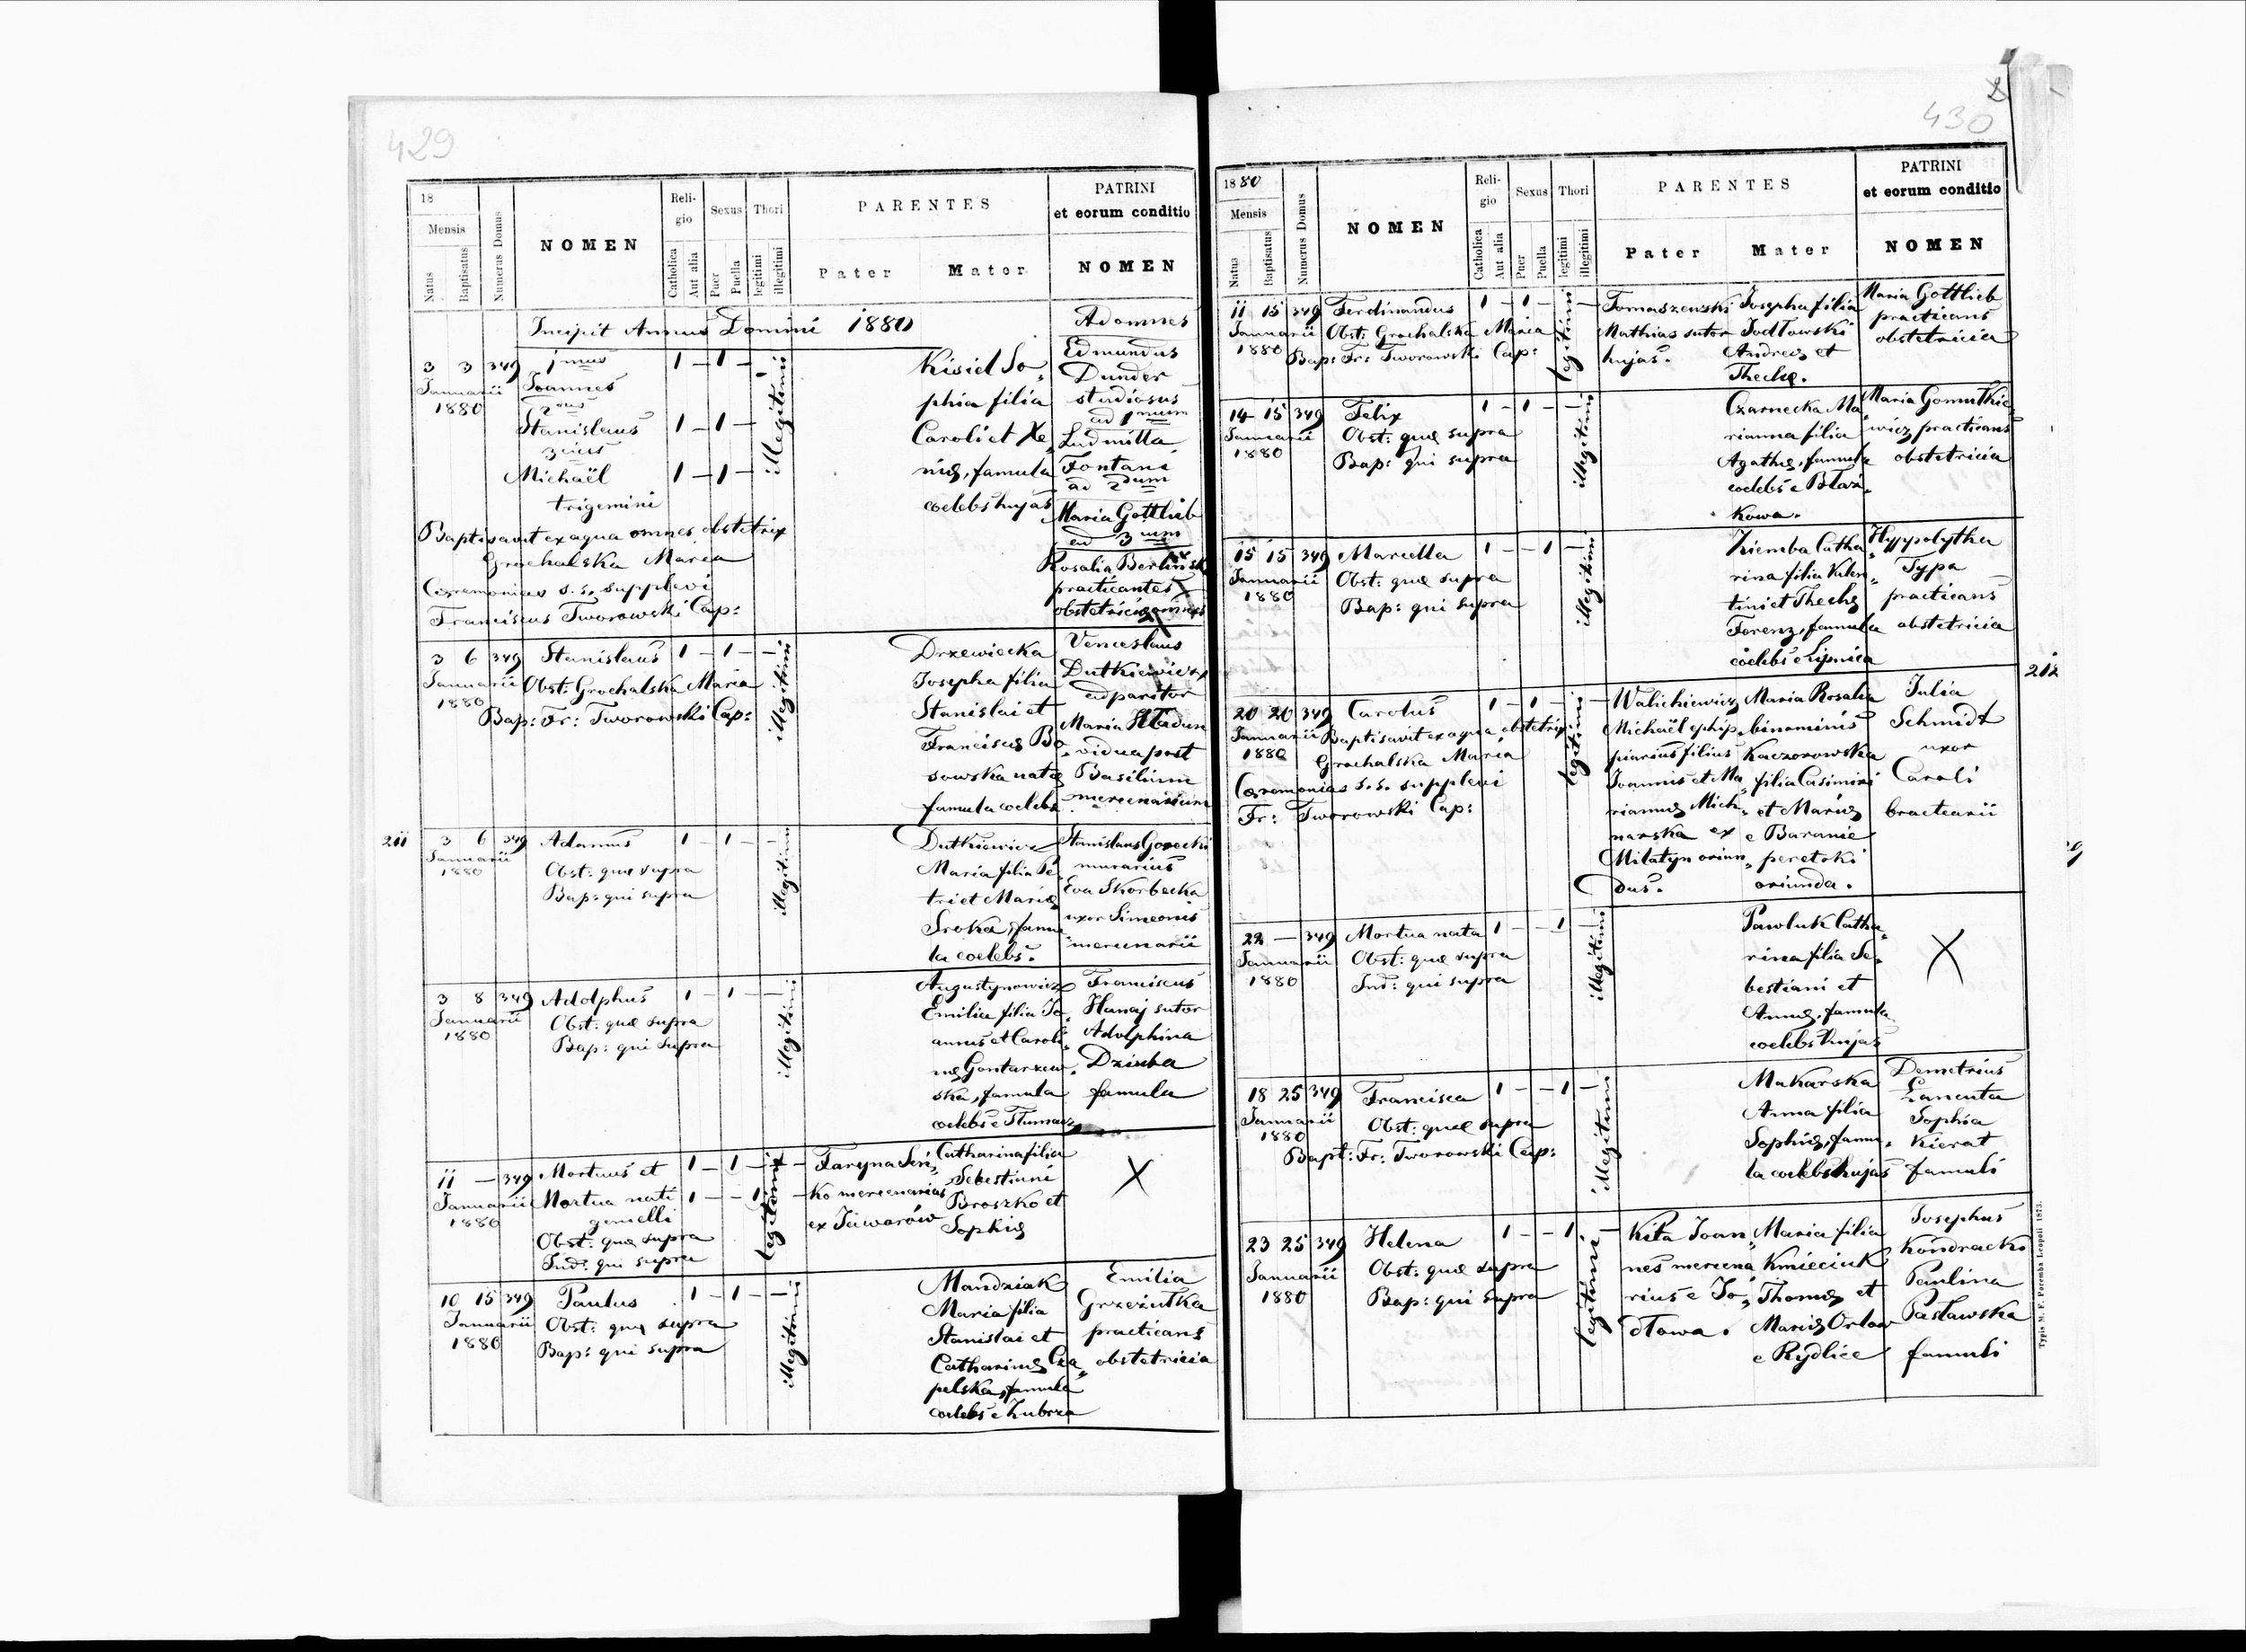 429
18
Mensis
Natus
Baptisatus
Numerus Domus
NOMEN
Reli-
gio
Catholica
Aut alia
Sexus
Puer
Puella
Thori
legitimi
illegitimi
PARENTES
Pater
Mater
PATRINI
et eorum conditio
NOMEN
Incipit Annus Domini 1880
3 3 349
Januarii
1880
1mus
Joannes
2dus
Stanislaus
3ius
Michaël
trigemini
1 – 1 –
1 – 1 –
1 – 1 –
illegitimi
Baptisavit ex aqua omnes obstetrix
Grochalska Maria
Ceremonias s. s. supplevi
Franciscus Tworowski Cap:
Kisiel So„
phia filia
Caroli et Xe„
nię, famula
coelebs hujas
Ad omnes
Edmundus
Dunder
studiosus
ad 1mum
Ludmilla
Fontani
ad 2dum
Maria Gottlieb
ad 3ium
Rosalia Berlinsk
practicantes
obstetricię omnes
3 6 349
Januarii
1880
Stanislaus
Obst: Grochalska Maria
Bap: Fr: Tworowski Cap:
1 – 1 – –
illegitimi
Drzewiecka
Josepha filia
Stanislai et
Franciscę Bo„
sowska natę
famula coelebs
Venceslaus
Dutkiewicz
adparitor
Maria Hładun
vidua post
Basilium
mercenarium
211
3 6 349
Januarii
1880
Adamus
Obst: quę supra
Bap: qui supra
1 – 1 – –
illegitimi
Dutkiewicz
Maria filia Pe„
tri et Marię
Sroka, famu„
la coelebs.
Stanislaus Gorecki
murarius
Eva Skorbecka
uxor Simeonis
mercenarii
3 8 349
Januarii
1880
Adolphus
Obst: quę supra
Bap: qui supra
1 – 1 – –
illegitimi
Augustynowicz
Emilia filia Jo„
annis et Caroli„
nę Gontarzew„
ska, famula
coelebs e Tłumacz
Franciscus
Hanaj sutor
Adolphina
Dziuba
famula
11 – 349
Januarii
1880
Mortuus et
Mortua nati
gemelli
Obst: quę supra
Ind: qui supra
1 – 1 –
1 – – 1
legitimi
Faryna Seń„
ko mercenarius
ex Jaworów
Catharina filia
Sebestiani
Broszko et
Sophię
X
10 15 349
Januarii
1880
Paulus
Obst: quę supra
Bap: qui supra
1 – 1 – –
illegitimi
Mandziak
Maria filia
Stanislai et
Catharinę Cza„
pelska, famula
coelebs e Zubrza
Emilia
Grzeżułka
practicans
obstetricia
430
1880
Mensis
Natus
Baptisatus
Numerus Domus
NOMEN
Reli-
gio
Catholica
Aut alia
Sexus
Puer
Puella
Thori
legitimi
illegitimi
PARENTES
Pater
Mater
PATRINI
et eorum conditio
NOMEN
11 15 349
Januarii
1880
Ferdinandus
Obst: Grochalska Maria
Bap: Fr: Tworowski Cap:
1 – 1 –
legitimi
Tomaszewski
Mathias sutor
hujas.
Josepha filia
Jodłowski
Andreę et
Theclę.
Maria Gottlieb
practicans
obstetricia
14 15 349
Januarii
1880
Felix
Obst: quę supra
Bap: qui supra
1 – 1 – –
illegitimi
Czarnecka Ma„
rianna filia
Agathę, famula
coelebs e Błaż„
kowa.
Maria Gomułkie„
wicz practicans
obstetricia
15 15 349
Januarii
1880
Marcella
Obst: quę supra
Bap: qui supra
1 – – 1 –
illegitimi
Ziemba Catha„
rina filia Valen„
tini et Theclę
Forenz, famula
coelebs e Lipnica
Hyppolytha
Typa
practicans
obstetricia
212
20 20 349
Januarii
1880
Carolus
Baptisavit ex aqua obstetrix
Grochalska Maria
Ceremonias s. s. supplevi
Fr: Tworowski Cap:
1 – 1 –
legitimi
Walichiewicz
Michaël ephip„
piarius filius
Joannis et Ma„
riannę Mich„
narska ex
Milatyn oriun„
dus.
Maria Rosalia
binominis
Kaczorowska
filia Casimiri
et Marię
e Baranie
peretoki
oriunda.
Julia
Schmidt
uxor
Caroli
bractearii
22 – 349
Januarii
1880
Mortua nata
Obst: quę supra
Ind: qui supra
1 – – 1 –
illegitimi
Pawluk Catha„
rina filia Se„
bestiani et
Annę, famula
coelebs hujas
X
18 25 349
Januarii
1880
Francisca
Obst: quę supra
Bapt: Fr: Tworowski Cap:
1 – – 1 –
illegitimi
Makarska
Anna filia
Sophię, famu„
la coelebs hujas
Demetrius
Łancuta
Sophia
Kierat
famuli
23 25 349
Januarii
1880
Helena
Obst: quę supra
Bap: qui supra
1 – – 1 –
legitimi
Kita Joan„
nes mercena
rius e Jo„
dłowa.
Maria filia
Kmieciuk
Thomę et
Marię Orlow
e Rydlice
Josephus
Kondracki
Paulina
Pasławska
famuli
Typis M. F. Poremba Leopoli 1873.